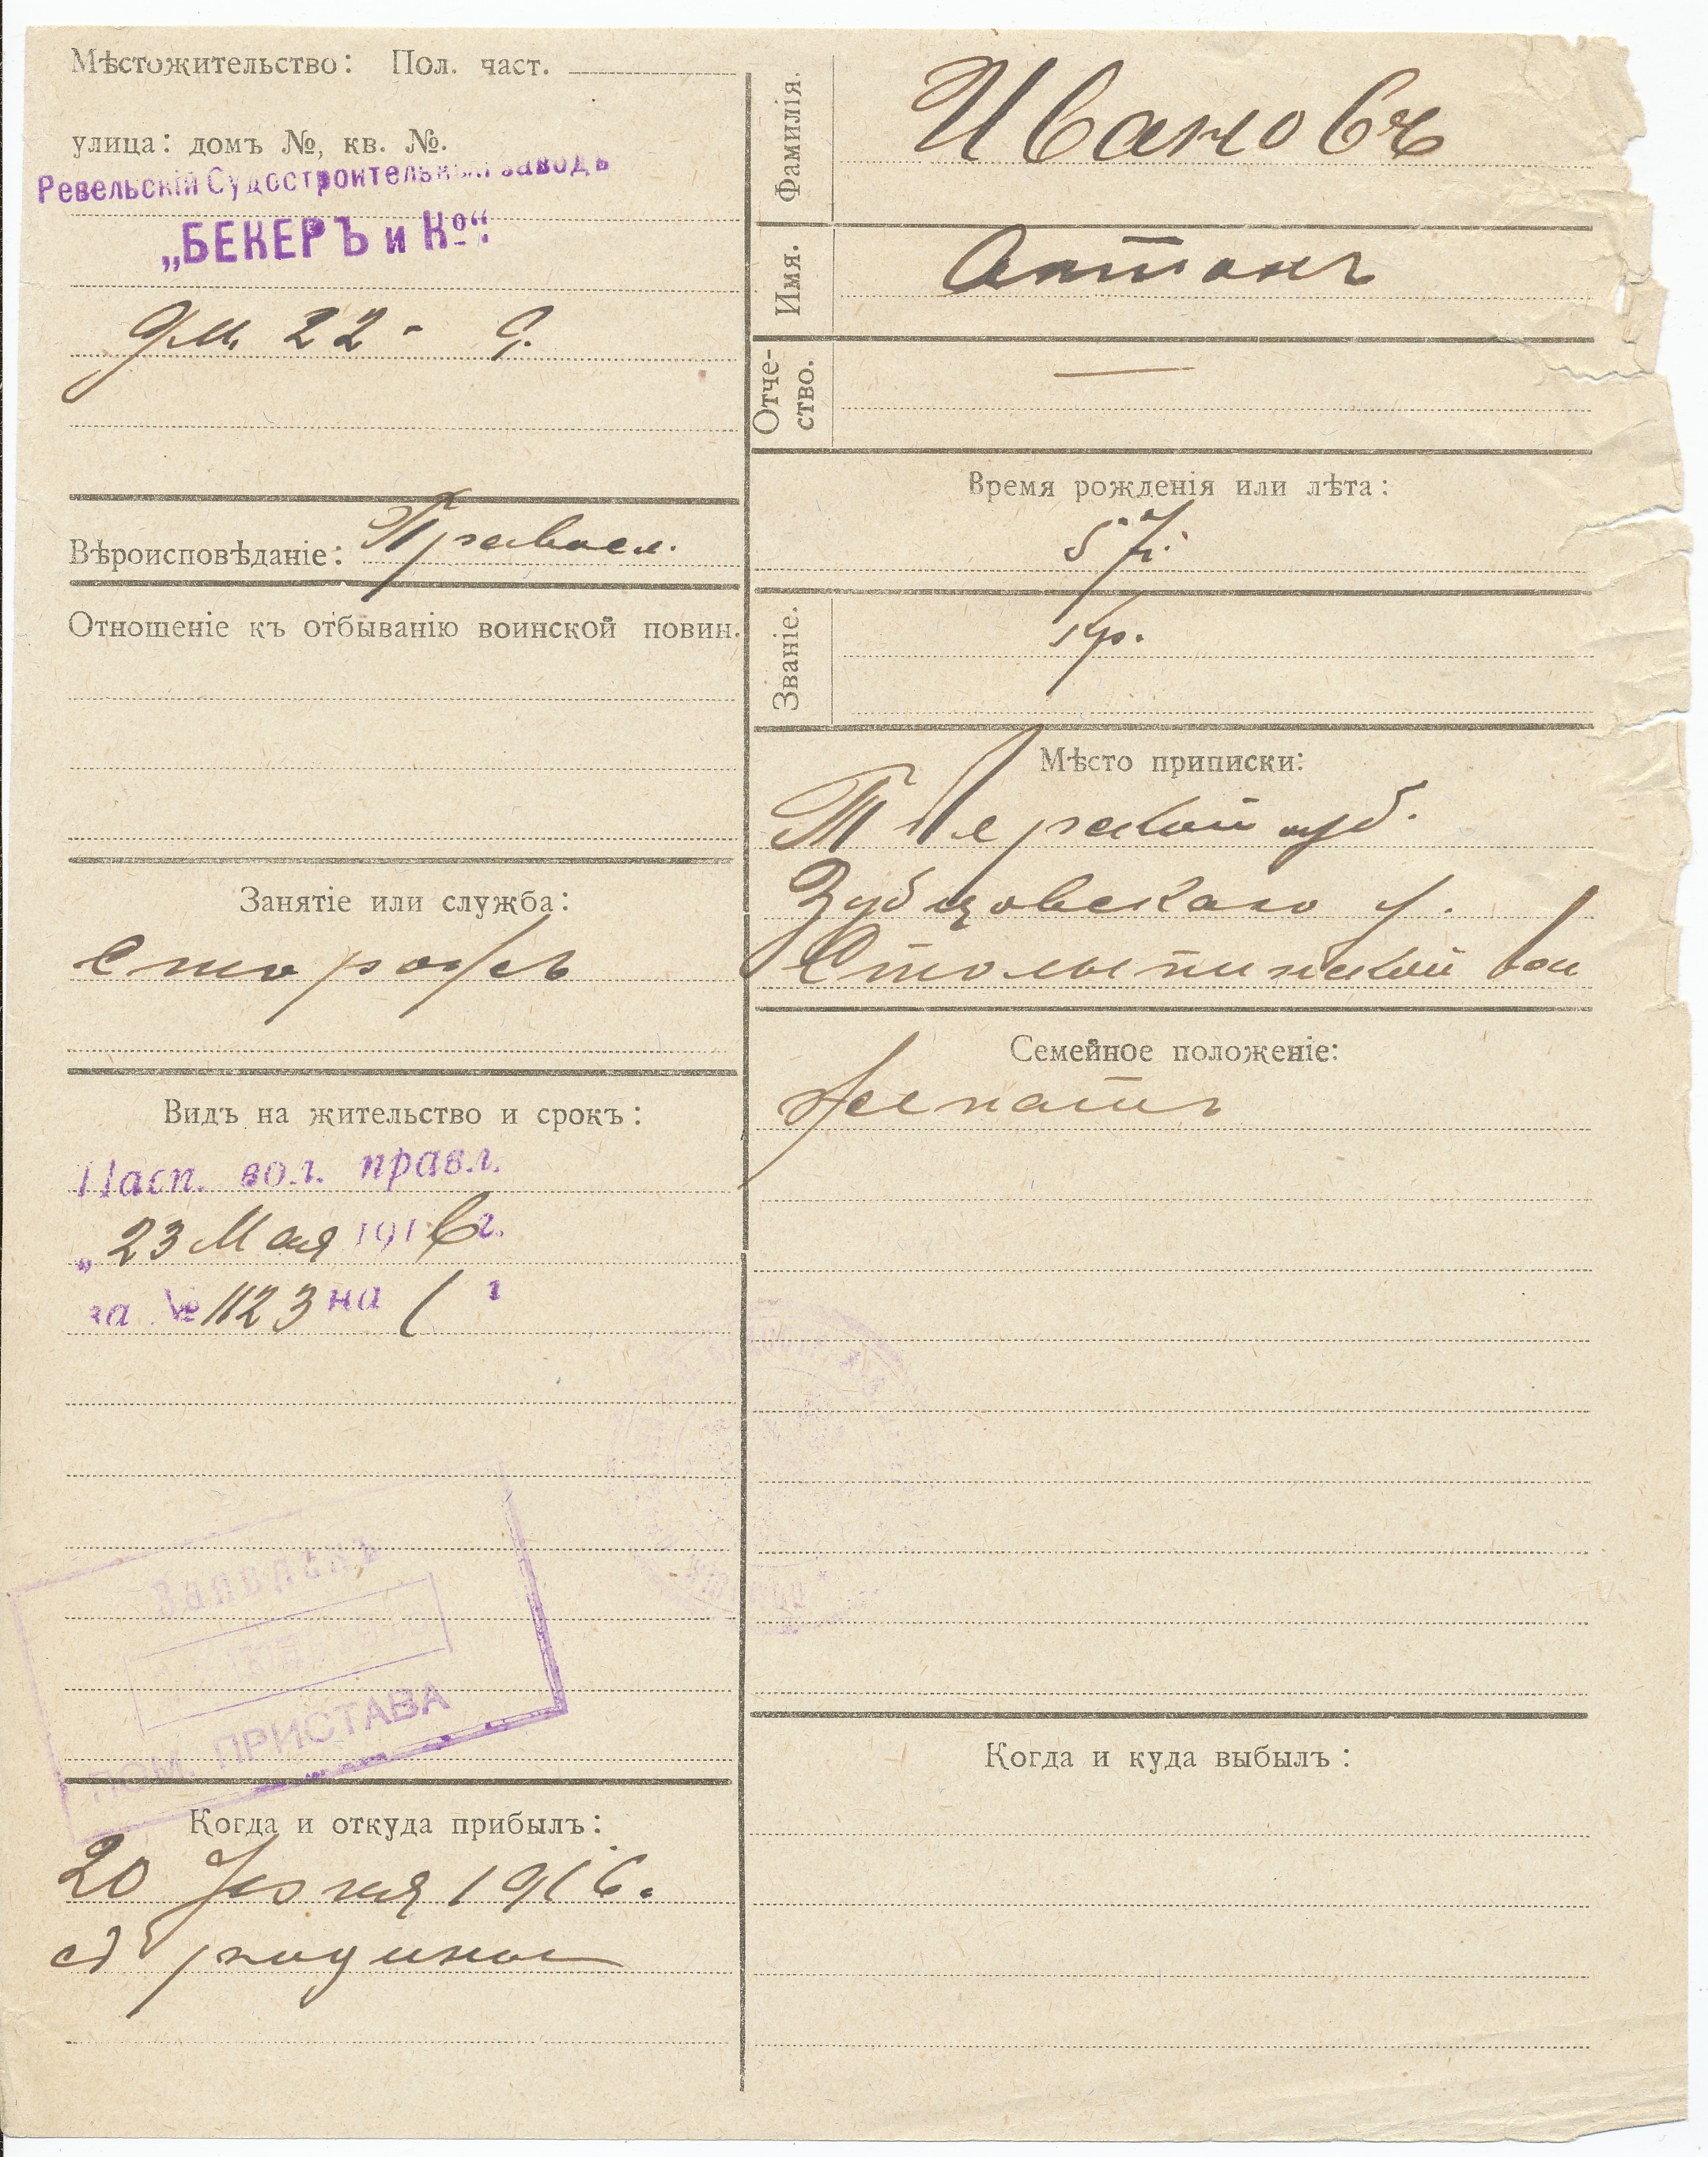 Мѣстожительство: Пол. част.
улица: домъ №, кв. №.
Ревельскій Судостроительный заводъ
„БЕКЕРЪ и Ко“.
22 -
Вѣроисповѣданіе: Правосл.
Отношеніе къ отбыванію воинской повин.
Занятіе или служба:
Сторожъ
Видъ на жительство и срокъ:
Пасп. вол. правл.
„23 Мая 1916 г.
за № 1123 на 1 г
ПОМ. ПРИСТАВА
Когда и откуда прибылъ:
20 Іюня 1916.
съ родины
Фамилія.
Ивановъ
Имя.
Антонъ
Отче-
ство.
—
Время рожденія или лѣта:
57 л.
Званіе.
кр.
Мѣсто приписки:
Тверской губ.
Зубцовскаго у.
Столыпинской вол
Семейное положеніе:
женатъ
Когда и куда выбылъ: